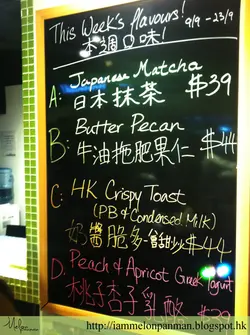 This Week's flavours!
本週口味! 9/9 - 23/9
A: Japanese Matcha
日本抹茶 $39
B: Butter Pecan
牛油拖肥果仁 $44
C: HK Crispy Toast
(PB & Condensed Milk)
奶醬脆多 $44
D. Peach & Apricot Greek Yogurt
桃子杏子乳酪 $39
http://iammelonpanman.blogspot.hk